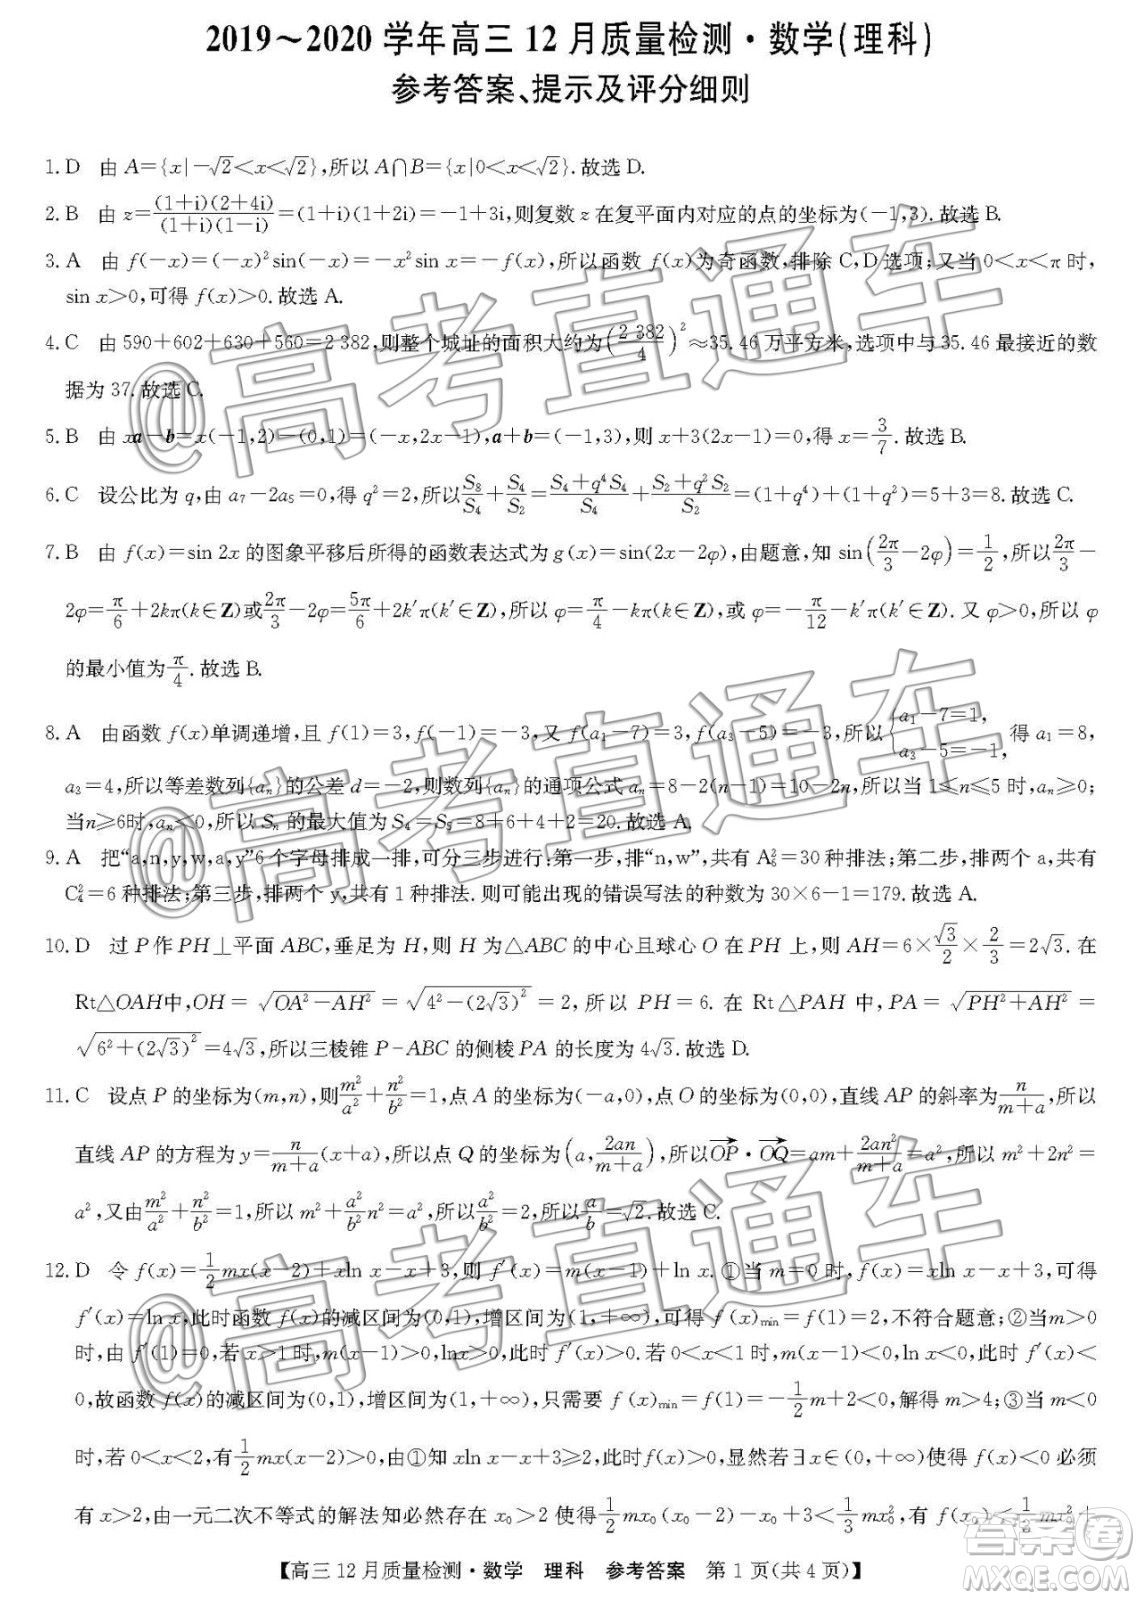 2019～2020 学年高三 12 月质量检测·数学(理科)
参考答案、提示及评分细则
1. D 由 A={x|-√2<x<√2},所以 A∩B={x|0<x<√2}.故选 D.
2. B 由 z=(1+i)(2+4i)/(1+i)(1-i)=(1+i)(1+2i)=-1+3i,则复数 z 在复平面内对应的点的坐标为(-1,3).故选 B.
3. A 由 f(-x)=(-x)²sin(-x)=-x²sin x=-f(x),所以函数 f(x)为奇函数,排除 C,D 选项;又当 0<x<π 时,
sin x>0,可得 f(x)>0.故选 A.
4. C 由 590+602+630+560=2 382,则整个城址的面积大约为(2 382/4)²≈35.46 万平方米,选项中与 35.46 最接近的数
据为 37.故选 C.
5. B 由 xa-b=x(-1,2)-(0,1)=(-x,2x-1),a+b=(-1,3),则 x+3(2x-1)=0,得 x=3/7.故选 B.
6. C 设公比为 q,由 a₇-2a₅=0,得 q²=2,所以 S₈/S₄+S₄/S₂=(S₄+q⁴S₄)/S₄+(S₂+q²S₂)/S₂=(1+q⁴)+(1+q²)=5+3=8.故选 C.
7. B 由 f(x)=sin 2x 的图象平移后所得的函数表达式为 g(x)=sin(2x-2φ),由题意,知 sin(2π/3-2φ)=1/2,所以 2π/3-
2φ=π/6+2kπ(k∈Z)或 2π/3-2φ=5π/6+2k′π(k′∈Z),所以 φ=π/4-kπ(k∈Z),或 φ=-π/12-k′π(k′∈Z).又 φ>0,所以 φ
的最小值为 π/4.故选 B.
8. A 由函数 f(x)单调递增,且 f(1)=3,f(-1)=-3,又 f(a₁-7)=3,f(a₃-5)=-3,所以{a₁-7=1, a₃-5=-1, 得 a₁=8,
a₃=4,所以等差数列{aₙ}的公差 d=-2,则数列{aₙ}的通项公式 aₙ=8-2(n-1)=10-2n,所以当 1≤n≤5 时,aₙ≥0;
当n≥6时,aₙ<0,所以 Sₙ 的最大值为 S₄=S₅=8+6+4+2=20.故选 A.
9. A 把“a,n,y,w,a,y”6 个字母排成一排,可分三步进行:第一步,排“n,w”,共有 A₆²=30 种排法;第二步,排两个 a,共有
C₄²=6 种排法;第三步,排两个 y,共有 1 种排法.则可能出现的错误写法的种数为 30×6-1=179.故选 A.
10. D 过 P 作 PH⊥平面 ABC,垂足为 H,则 H 为△ABC 的中心且球心 O 在 PH 上,则 AH=6×√3/2×2/3=2√3.在
Rt△OAH中,OH=√(OA²-AH²)=√(4²-(2√3)²)=2,所以 PH=6.在 Rt△PAH 中,PA=√(PH²+AH²)=
√(6²+(2√3)²)=4√3,所以三棱锥 P-ABC 的侧棱 PA 的长度为 4√3.故选 D.
11. C 设点 P 的坐标为(m,n),则 m²/a²+n²/b²=1,点 A 的坐标为(-a,0),点 O 的坐标为(0,0),直线 AP 的斜率为 n/(m+a),所以
直线 AP 的方程为 y=n/(m+a)(x+a),所以点 Q 的坐标为(a,2an/(m+a)),所以OP·OQ=am+2an²/(m+a)=a²,所以 m²+2n²=
a²,又由 m²/a²+n²/b²=1,所以 m²+a²/b² n²=a²,所以 a²/b²=2,所以 a/b=√2.故选 C.
12. D 令 f(x)=1/2 mx(x-2)+xln x-x+3,则 f′(x)=m(x-1)+ln x.①当 m=0 时,f(x)=xln x-x+3,可得
f′(x)=ln x,此时函数 f(x)的减区间为(0,1),增区间为(1,+∞),可得 f(x)min=f(1)=2,不符合题意;②当m>0
时,由 f′(1)=0,若 x>1 时,m(x-1)>0,ln x>0,可得 f′(x)>0.若 0<x<1 时,m(x-1)<0,ln x<0,可得 f′(x)<
0,故函数 f(x)的减区间为(0,1),增区间为(1,+∞),只需要 f(x)min=f(1)=-1/2 m+2<0,解得 m>4;③当 m<0
时,若 0<x<2,有 1/2 mx(x-2)>0,由①可知 xln x-x+3>0,此时f(x)>0,显然若∃x∈(0,+∞)使得 f(x)<0 必须
有 x>2,由一元二次不等式的解法知必然存在 x₀>2 使得 1/2 mx₀(x₀-2)-x₀+3<1/3 mx₀²,有 f(x₀)<1/3 mx₀²+
【高三 12 月质量检测·数学 理科 参考答案 第 1 页(共 4 页)】
@高考直通车
@高考直通车
@高考直通车
答案圈